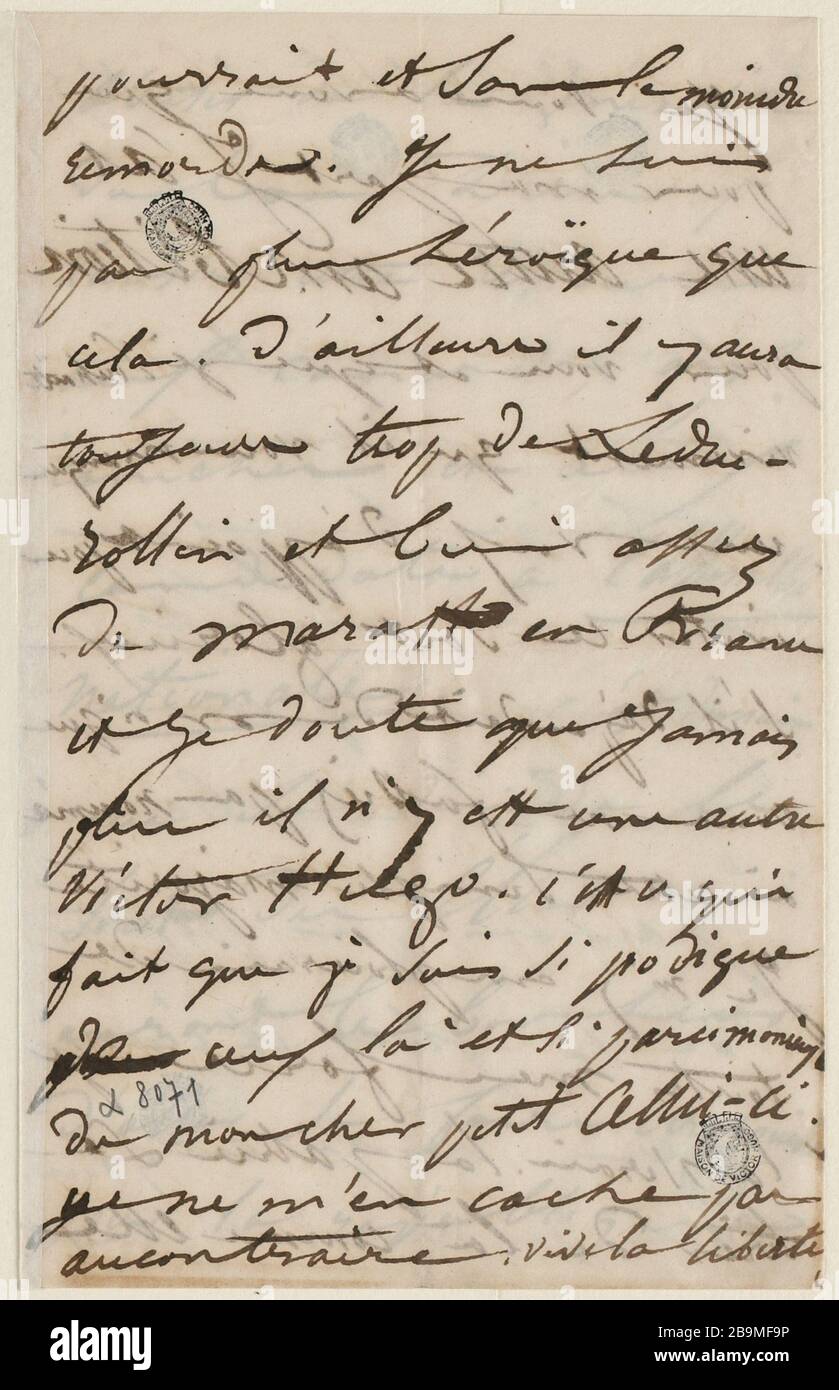 pourrait et sans le moindre
remords. Je ne suis
pas plus héroïque que
cela. D'ailleurs il y aura
toujours trop de Ledru-
rollin et bien assez
de marast en
et je doute que jamais
plus il n'y ett une autre
Victor Hugo. c'est ce qui
fait que je suis si podigue
de ceux là et si parcimonieuse
de mon cher petit Celui-ci.
α 8071
je ne m'en cache pas
au contraire. vive la liberté
MAISON DE VICTOR HUGO
alamy
Image ID: 2B9MF9P
www.alamy.com